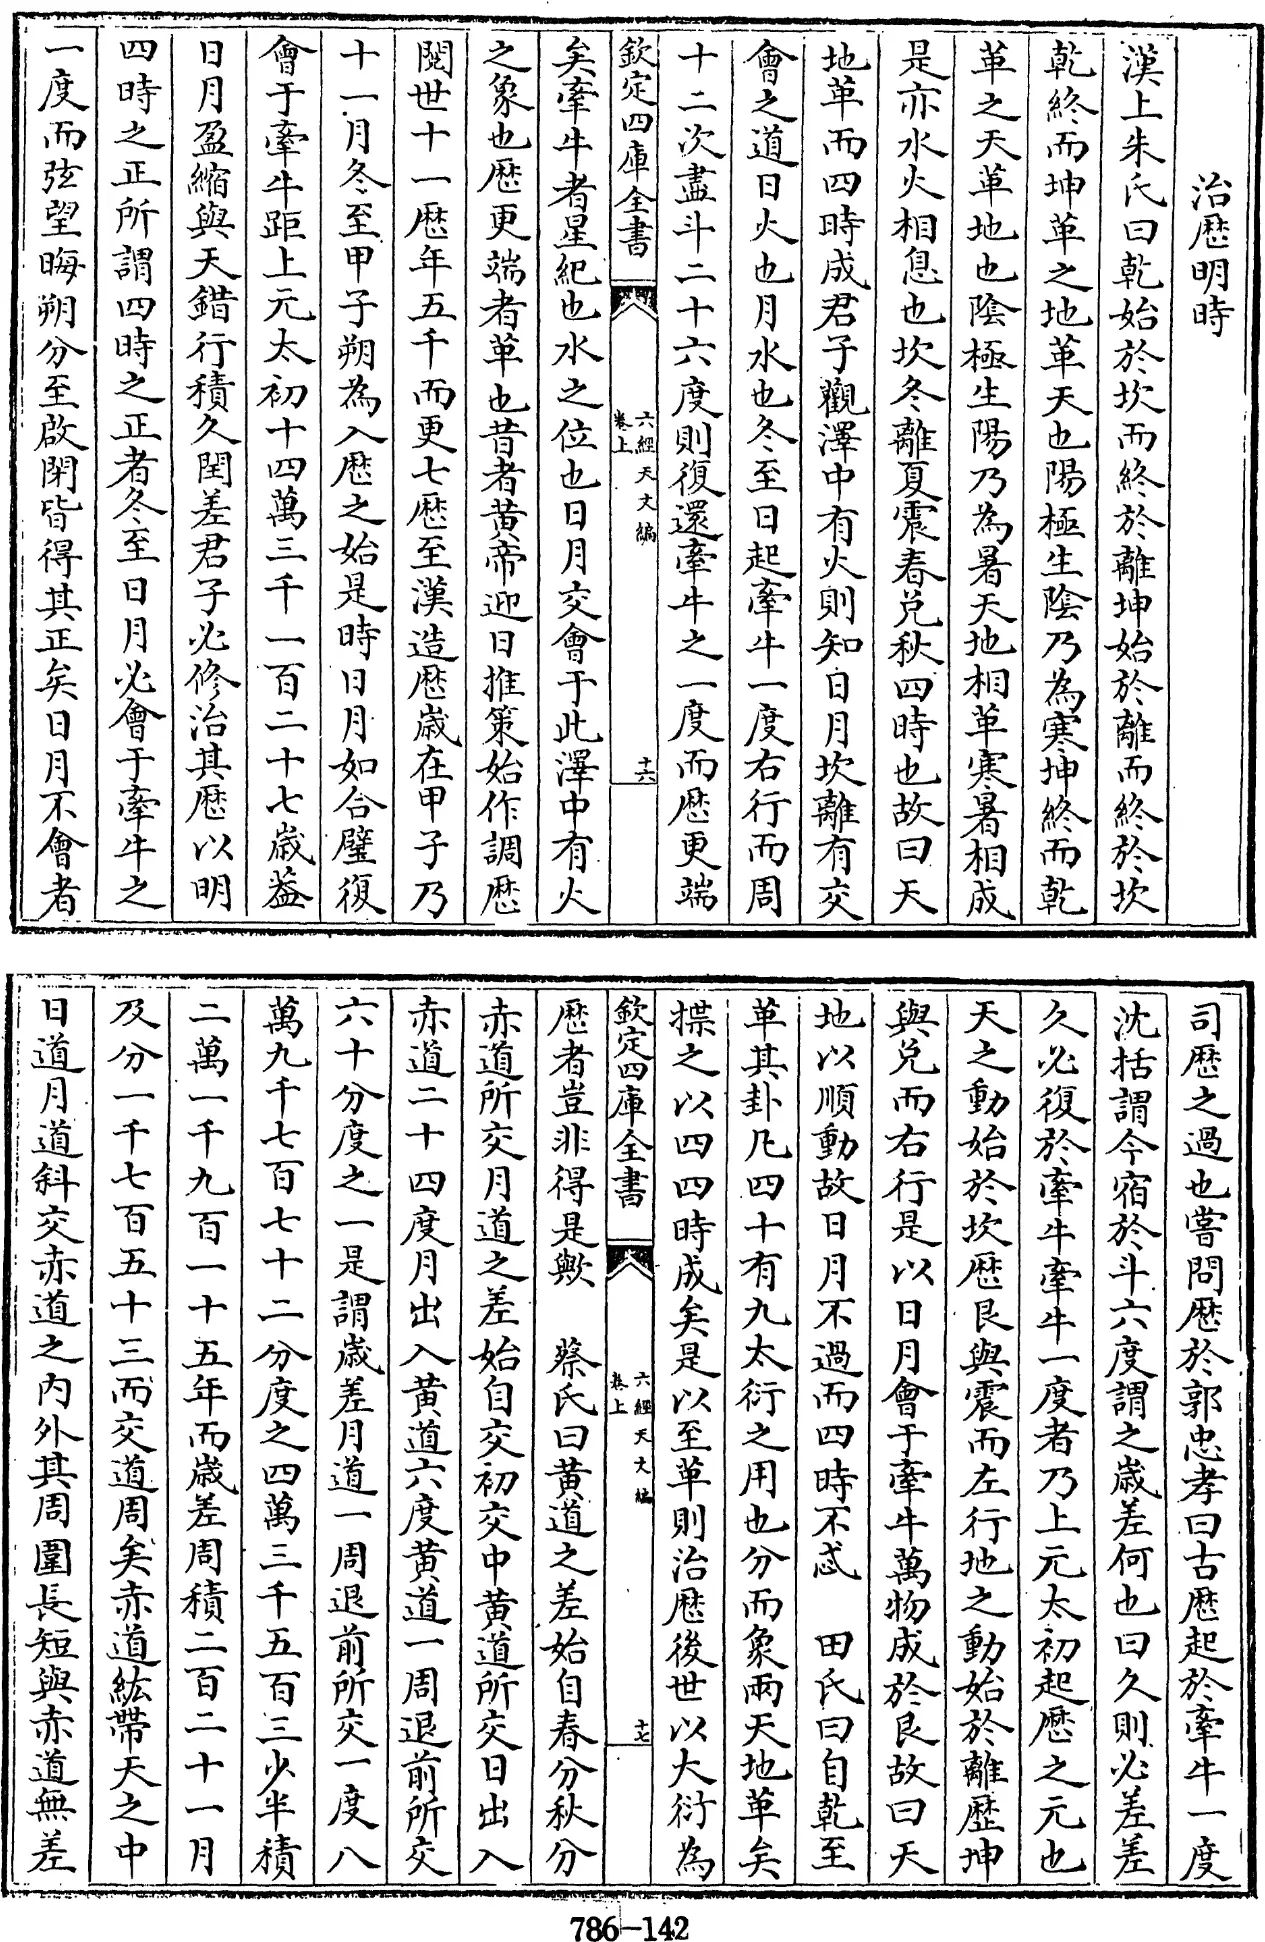 治歷明時
漢上朱氏曰乾始於坎而終於離坤始於離而終於坎
乾終而坤革之地革天也陽極生陰乃為寒坤終而乾
革之天革地也陰極生陽乃為暑天地相革寒暑相成
是亦水火相息也坎冬離夏震春兌秋四時也故曰天
地革而四時成君子觀澤中有火則知日月坎離有交
會之道日火也月水也冬至日起牽牛一度右行而周
十二次盡斗二十六度則復還牽牛之一度而歷更端
欽定四庫全書
六經天文編
卷上
十六
矣牽牛者星紀也水之位也日月交會于此澤中有火
之象也歷更端者革也昔者黃帝迎日推策始作調歷
閱世十一歷年五千而更七歷至漢造歷歲在甲子乃
十一月冬至甲子朔為入歷之始是時日月如合璧復
會于牽牛距上元太初十四萬三千一百二十七歲葢
日月盈縮與天錯行積久閏差君子必修治其歷以明
四時之正所謂四時之正者冬至日月必會于牽牛之
一度而弦望晦朔分至啟閉皆得其正矣日月不會者
司歷之過也嘗問歷於郭忠孝曰古歷起於牽牛一度
沈括謂今宿於斗六度謂之歲差何也曰久則必差差
久必復於牽牛牽牛一度者乃上元太初起歷之元也
天之動始於坎歷艮與震而左行地之動始於離歷坤
與兌而右行是以日月會于牽牛萬物成於艮故曰天
地以順動故日月不過而四時不忒　田氏曰自乾至
革其卦凡四十有九太衍之用也分而象兩天地革矣
揲之以四四時成矣是以至革則治歷後世以大衍為
欽定四庫全書
六經天文編
卷上
十七
歷者豈非得是歟　蔡氏曰黃道之差始自春分秋分
赤道所交月道之差始自交初交中黃道所交日出入
赤道二十四度月出入黃道六度黃道一周退前所交
六十分度之一是謂歲差月道一周退前所交一度八
萬九千七百七十二分度之四萬三千五百三少半積
二萬一千九百一十五年而歲差周積二百二十一月
及分一千七百五十三而交道周矣赤道紘帶天之中
日道月道斜交赤道之內外其周圍長短與赤道無差
786-142